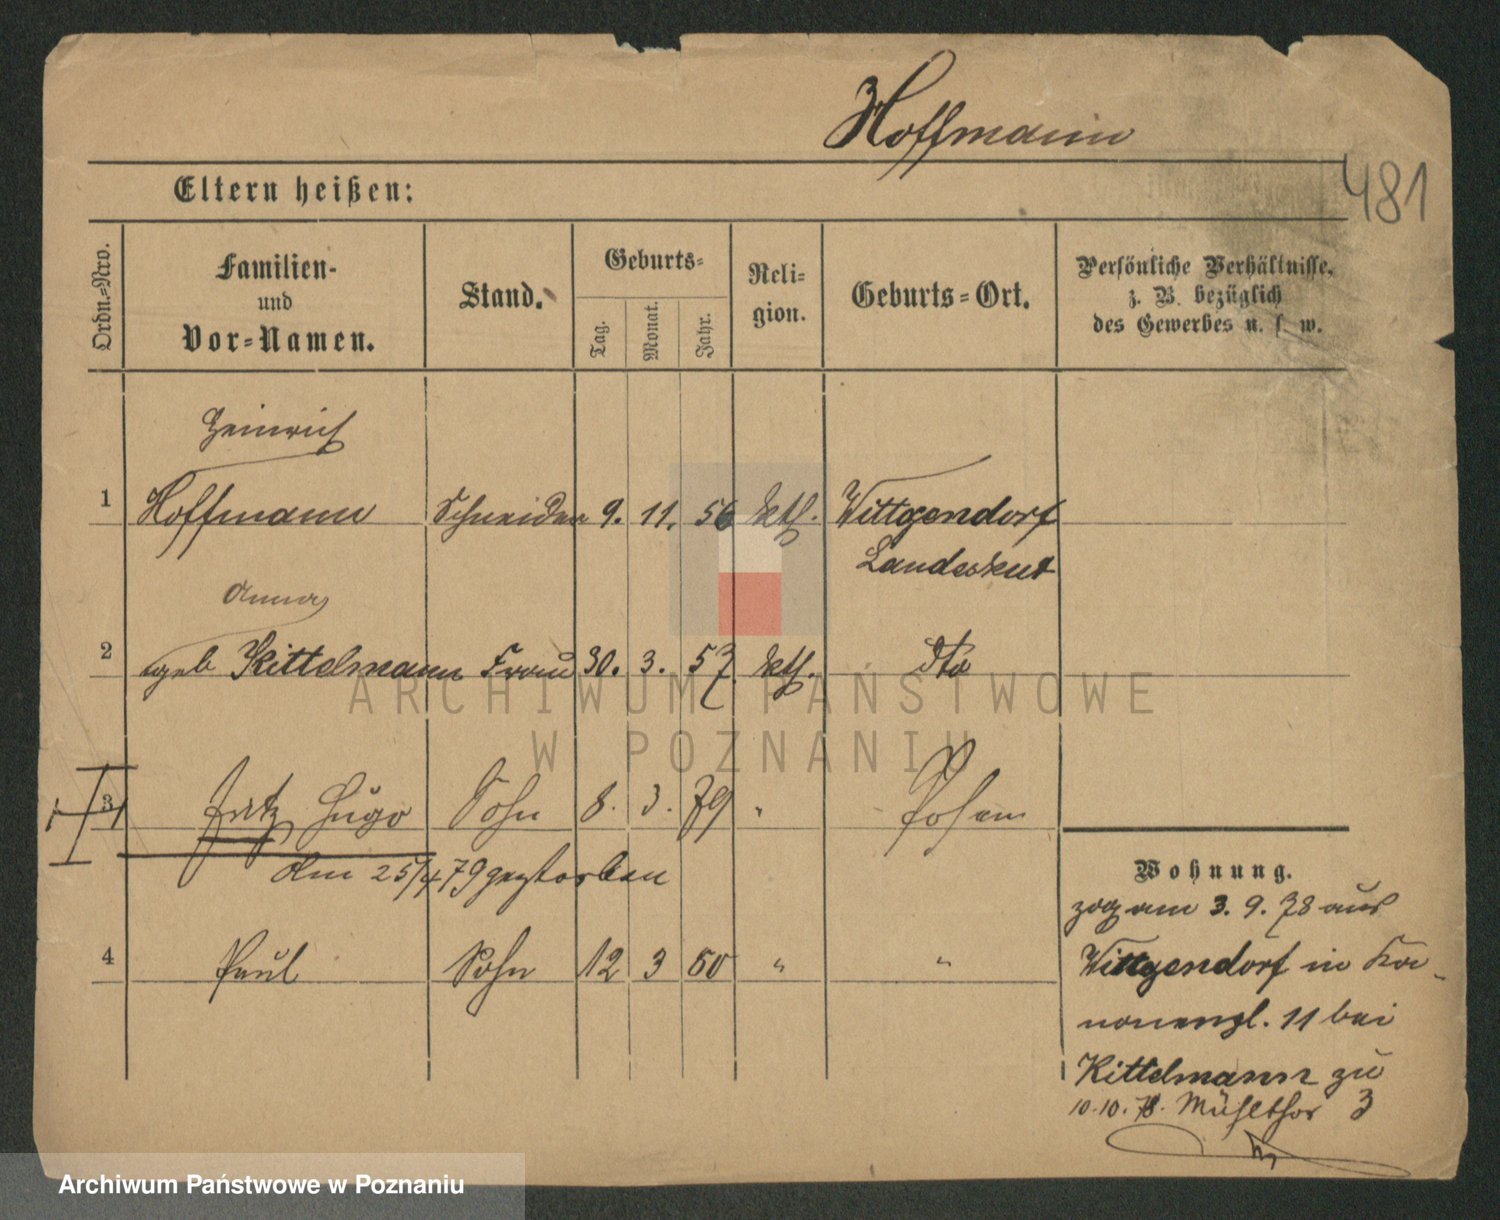 Hoffmann
481
Eltern heißen:
Ordn.=Nro.
Familien-
und
Vor=Namen.
Stand.
Geburts=
Tag.
Monat.
Jahr.
Reli-
gion.
Geburts=Ort.
Persönliche Verhältnisse,
z. B. bezüglich
des Gewerbes u. s. w.
Heinrich
1 Hoffmann Schneider 9. 11. 56 kth. Wittgendorf
Landeshut
Anna
2 geb Kittelmann Frau 30. 3. 57 kth. dto
3 Fritz Hugo Sohn 8. 3. 79 " Posen
am 25/4 79 gestorben
4 Paul Sohn 12 3 80 " "
Wohnung.
zog am 3. 9. 78 aus
Wittgendorf in Ka-
nonenpl. 11 bei
Kittelmann zu
10.10.78. Mühlthor 3
ARCHIWUM PAŃSTWOWE
W POZNANIU
Archiwum Państwowe w Poznaniu